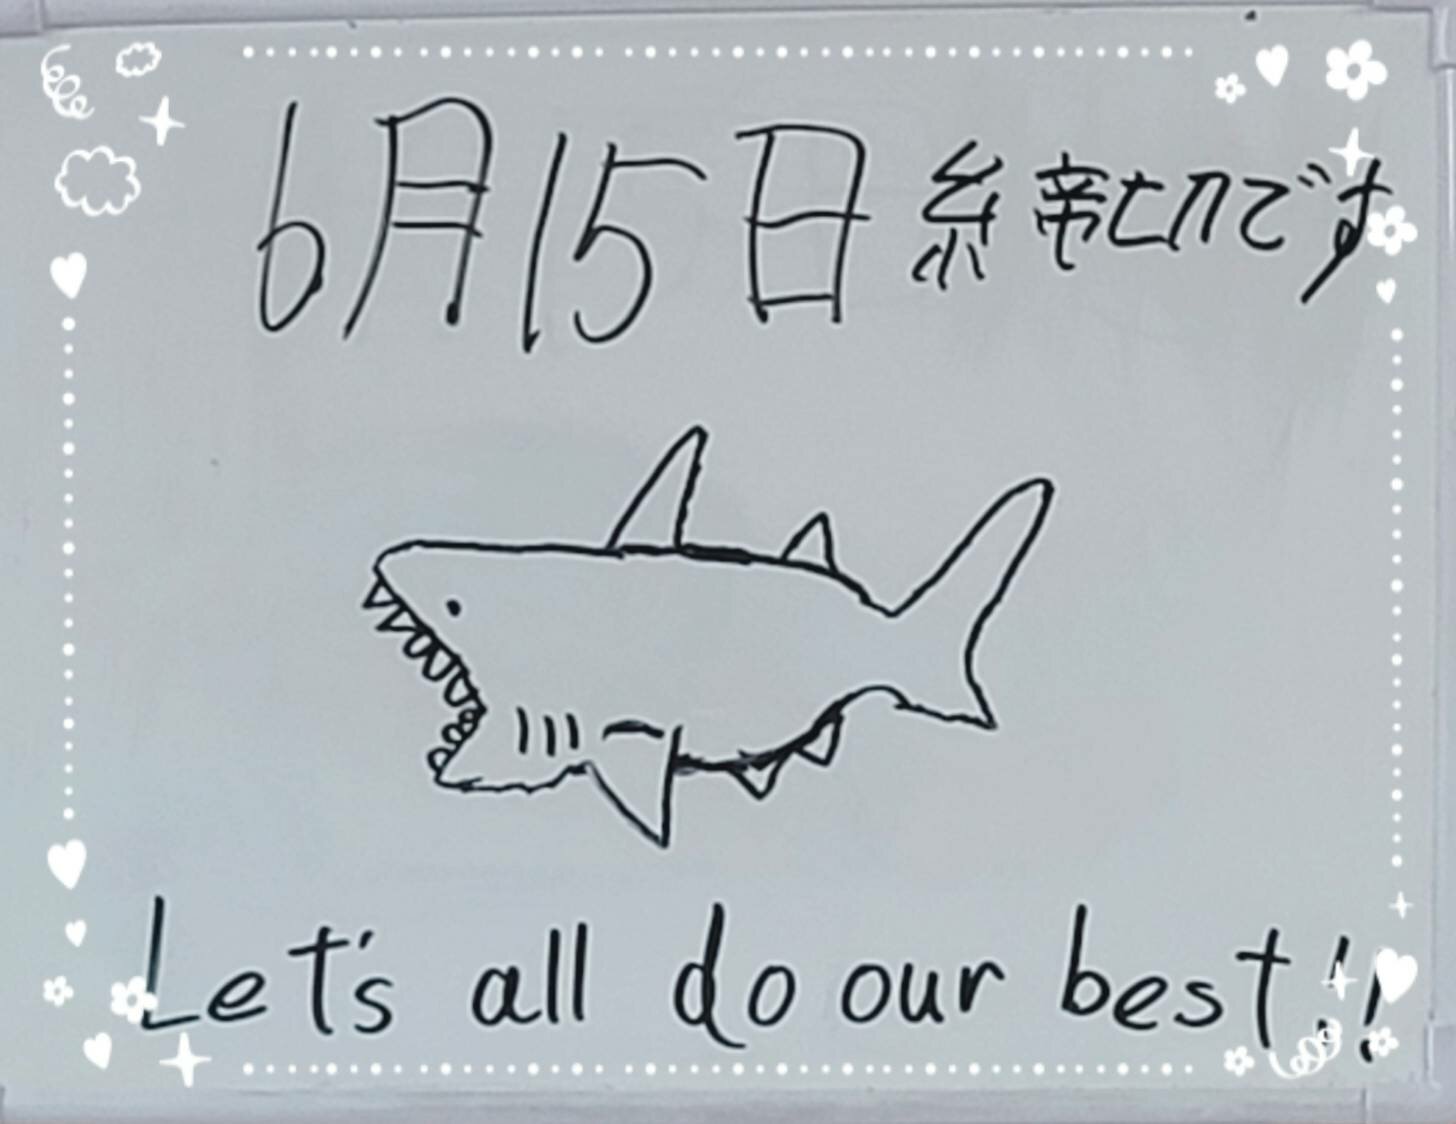 6月15日締切です
Let's all do our best!!